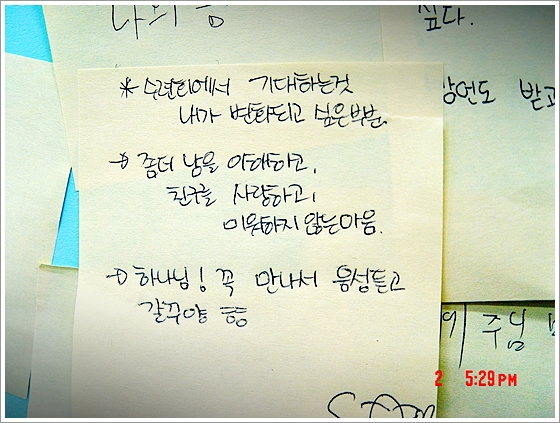 나의
싶다.
* 수련회에서 기대하는것
내가 변화되고 싶은부분.
좀더 남을 이해하고,
친구를 사랑하고,
미워하지 않는마음.
하나님! 꼭 만나서 음성듣고
갈꾸얌 ㅎㅎ
받고
주님
2 5:29PM